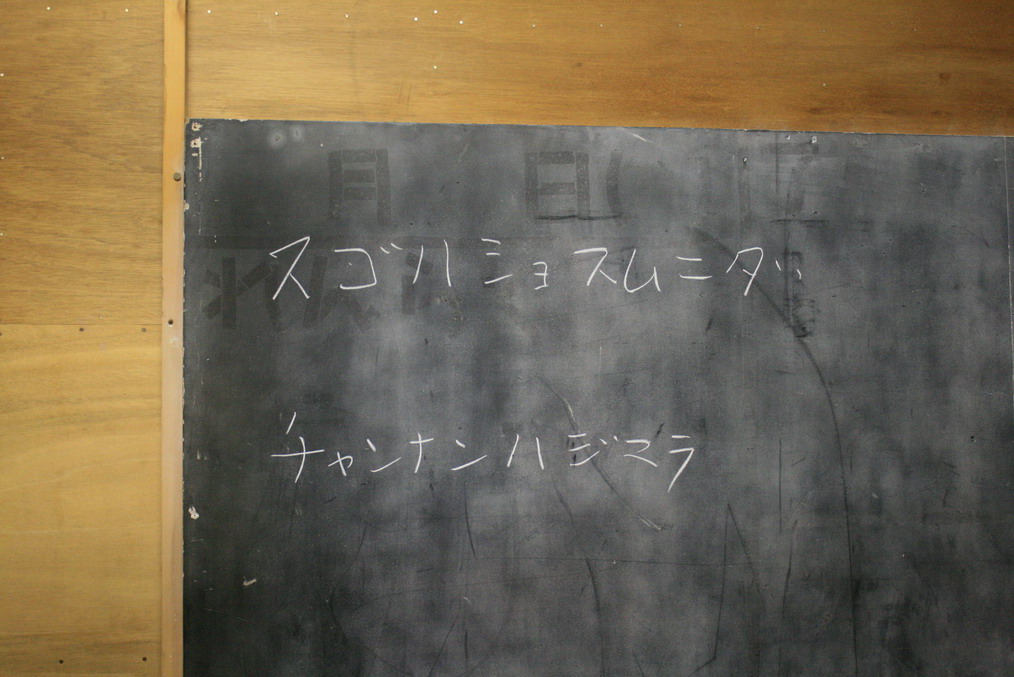 月 日
スゴハショスムニダ
チャンナンハジマラ